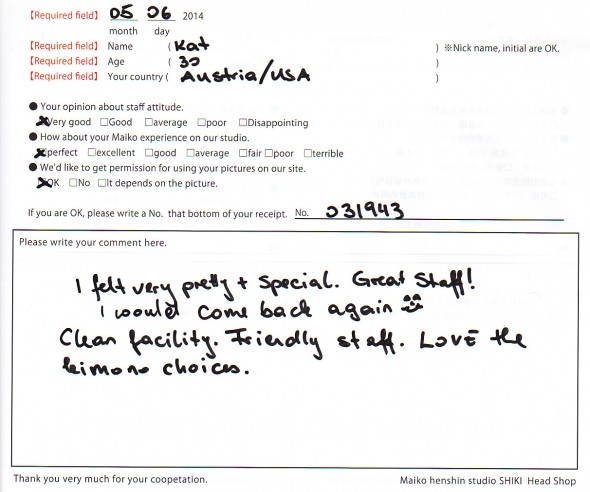 【Required field】 05 06 2014
month day
【Required field】 Name ( Kat ) ※Nick name, initial are OK.
【Required field】 Age ( 30 )
【Required field】 Your country ( Austria/USA )
● Your opinion about staff attitude.
☒Very good □Good □average □poor □Disappointing
● How about your Maiko experience on our studio.
☒perfect □excellent □good □average □fair □poor □terrible
● We'd like to get permission for using your pictures on our site.
☒OK □No □It depends on the picture.
If you are OK, please write a No. that bottom of your receipt. No. 031943
Please write your comment here.
I felt very pretty + special. Great Staff!
I would come back again
Clean facility. Friendly staff. LOVE the
kimono choices.
Thank you very much for your coopetation. Maiko henshin studio SHIKI Head Shop